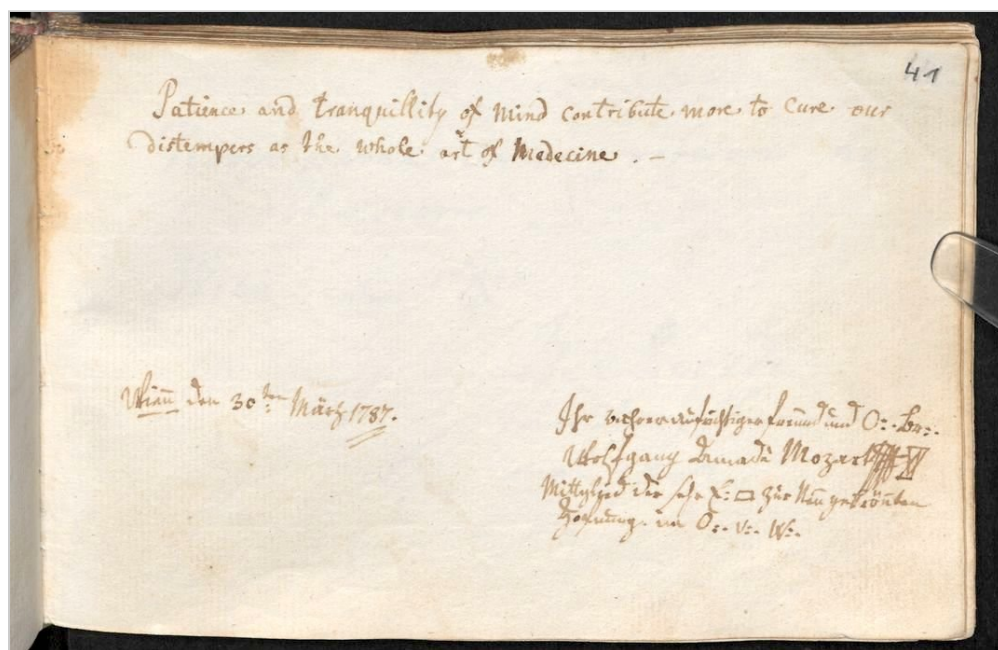 41
Patience and tranquillity of mind contribute more to cure our
distempers as the whole art of Medecine. –
Wien̄ den 30:ten März 1787.
Ihr wahrer aufrichtiger freund und O:. Br:.
Wolfgang Amadè Mozart
Mittglied der sehr E: □ zur Neugekrönten
Hofnung im O:. v:. W:.